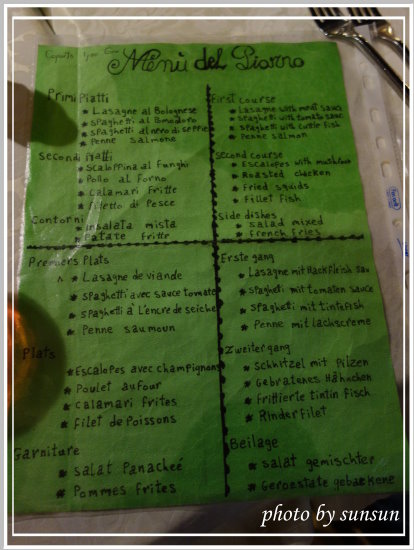 Coperto 1,50 Euro
Menù del Giorno
Primi Piatti
* Lasagne al Bolognese
* Spaghetti al Pomodoro
* Spaghetti al nero di seppie
* Penne Salmone
Secondi Piatti
* Scaloppina al funghi
* Pollo al forno
* Calamari fritte
* Filetto di Pesce
Contorni
* Insalata mista
Patate fritte
First course
* Lasagne with meat sauce
* Spaghetti with tomato sauce
* Spaghetti with cuttle fish
* Penne salmon
Second course
* Escalopes with mushrooms
* Roasted chicken
* Fried squids
* Fillet fish
Side dishes
* Salad mixed
* French fries
Premiers Plats
* Lasagne de viande
* Spaghetti avec sauce tomate
* Spaghetti à l'encre de seiche
* Penne saumon
Plats
* Escalopes avec champignons
* Poulet au four
* Calamari frites
* Filet de Poissons
Garniture
* Salat Panacheé
* Pommes frites
Erste gang
* Lasagne mit Hackfleish sau
* Spagheti mit tomaten sauce
* Spagheti mit tintefish
* Penne mit lachscreme
Zweiter gang
* Schnitzel mit Pilzen
* Gebratenes Hähnchen
* Frittierte tintin fisch
* Rinderfilet
Beilage
* Salat gemischter
* Geroestate gebackene
photo by sunsun